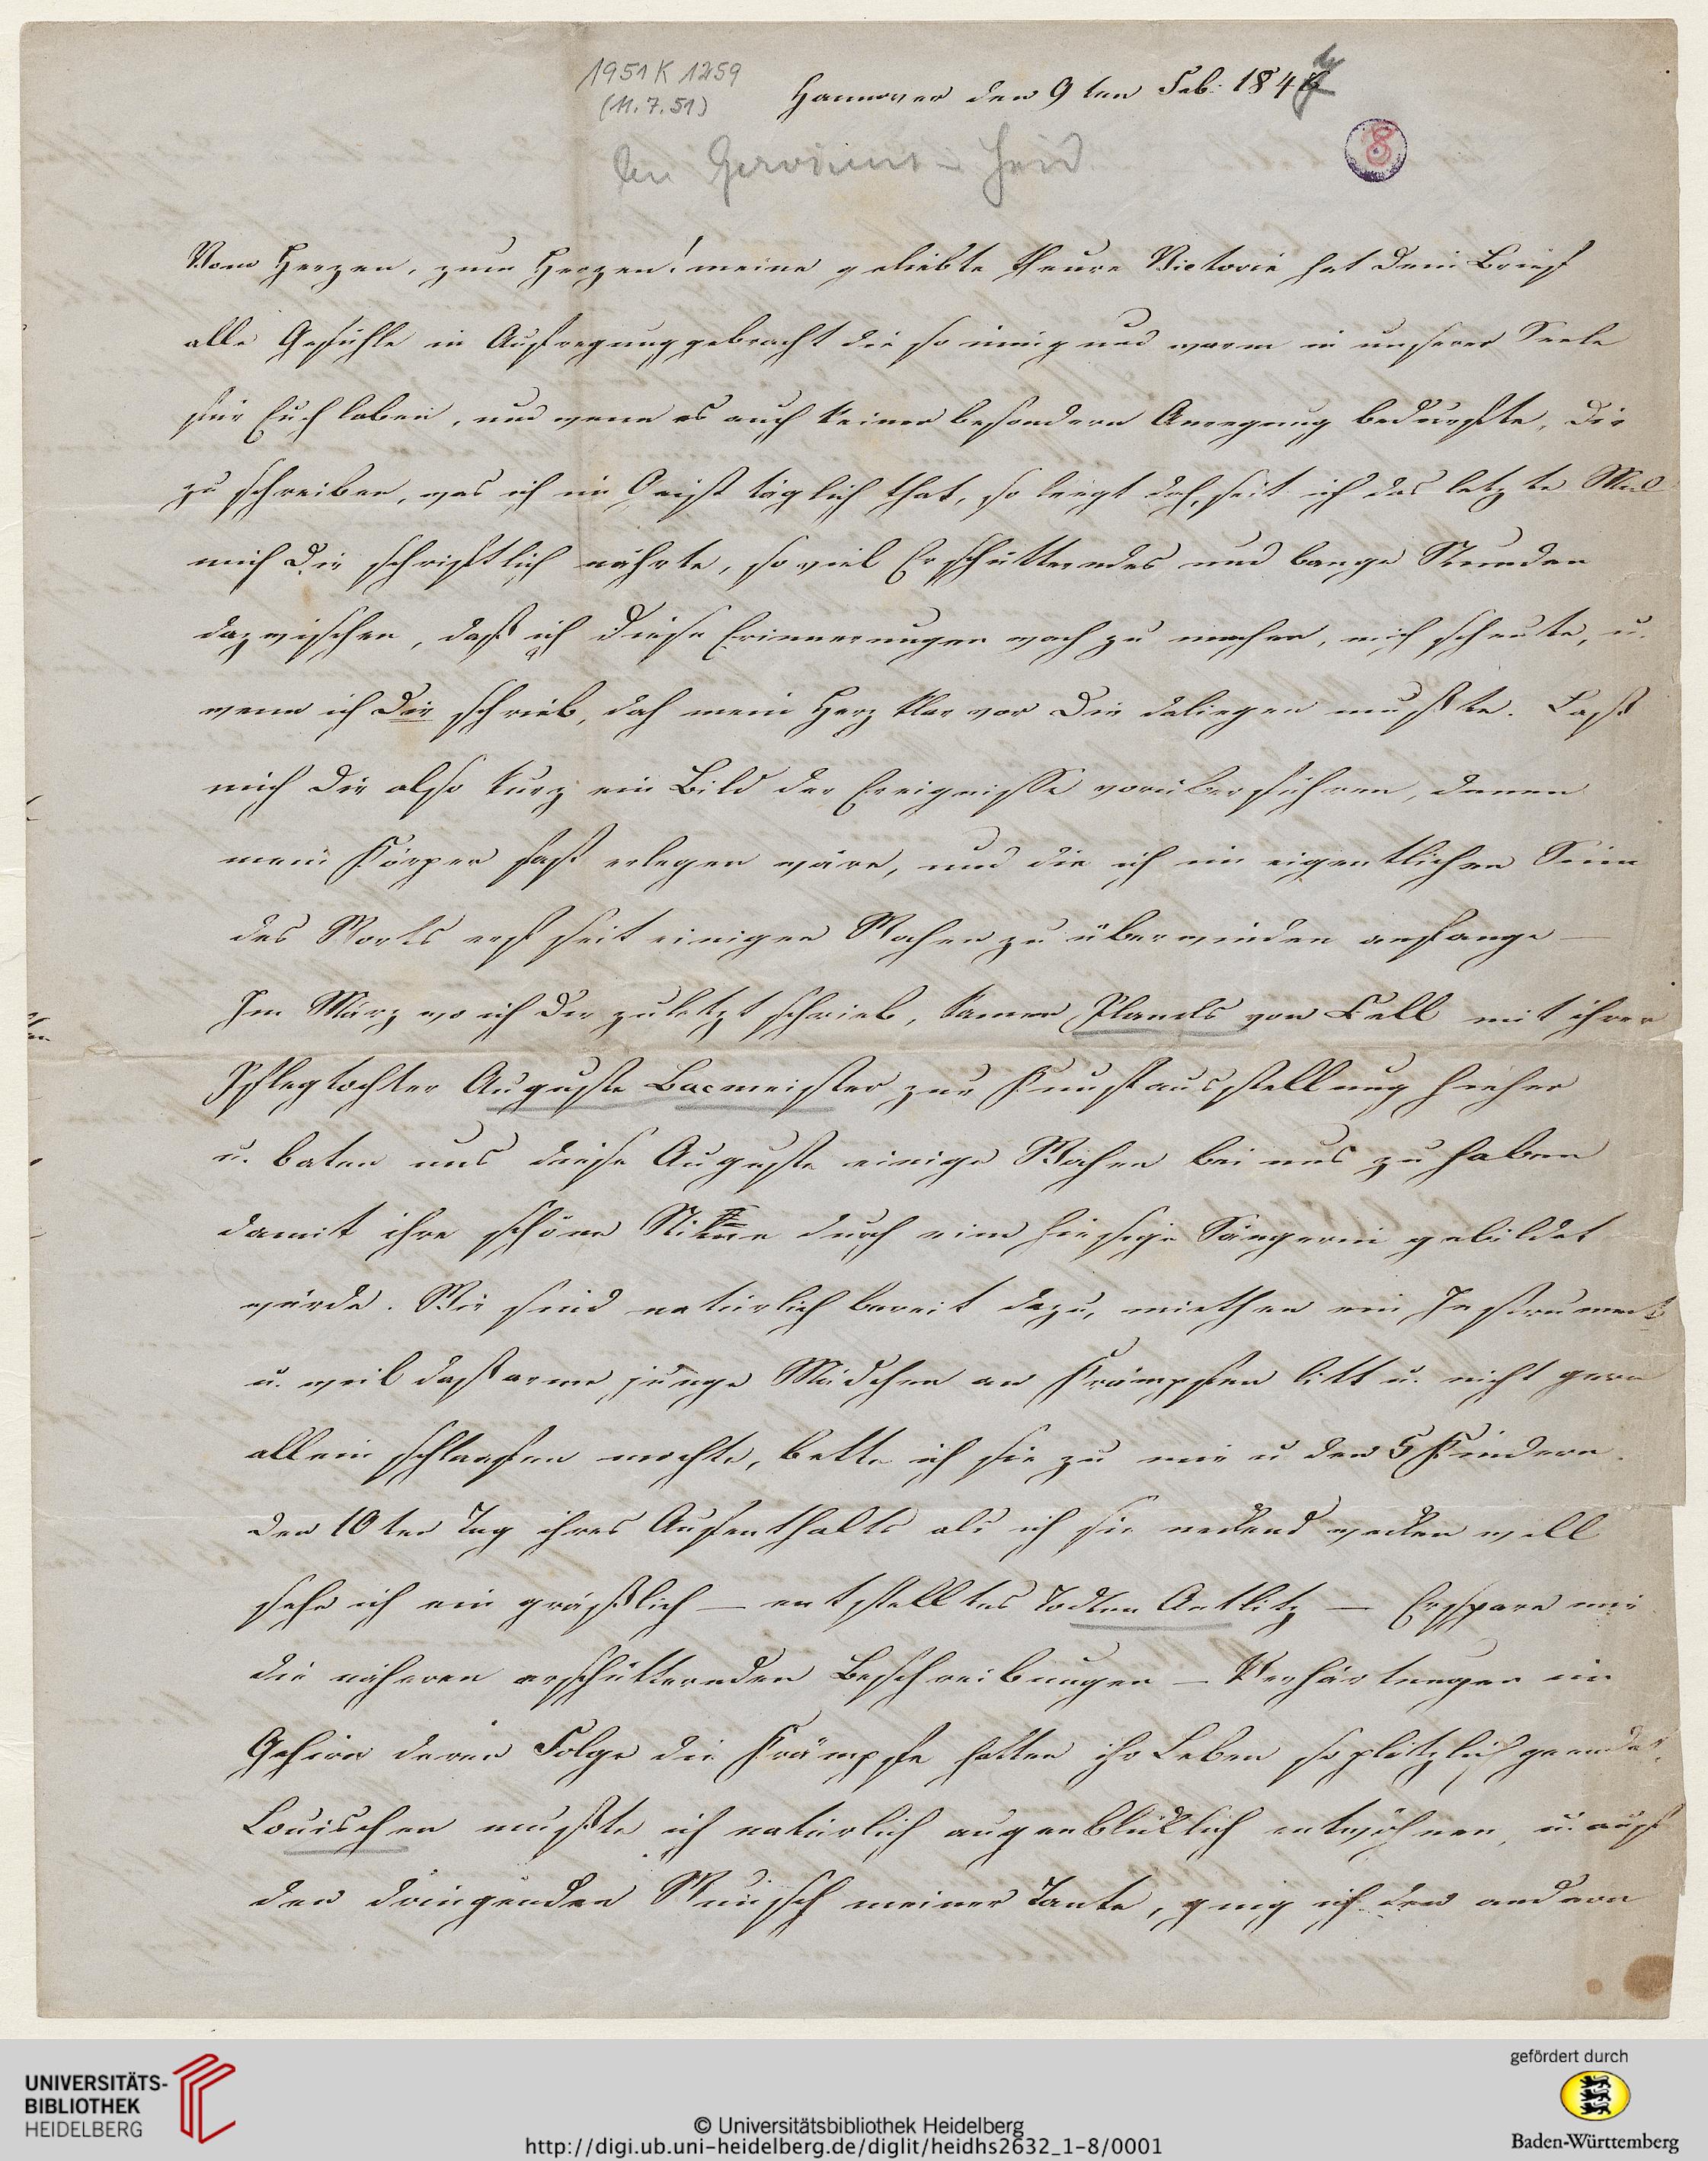 1951 K 1259
(11.7.51)
Hannover den 9ten Feb: 184
An Gervinus – Heid
8
Vom Herzen, zum Herzen! meine geliebte theure Victorie hat Dein Brief
alle Gefühle in Aufregung gebracht die so innig und warm in unserer Seele
für Euch leben, und wenn es auch keiner besondern Anregung bedurfte, Dir
zu schreiben, was ich im Geist täglich that, so liegt doch, seit ich das letzte Mal
mich Dir schriftlich nahte, so viel Erschütterndes und bange Stunden
dazwischen, daß ich diese Erinnerungen wach zu machen, mich scheute, u.
wenn ich Dir schrieb, doch mein Herz klar vor Dir daliegen mußte. Laß
mich Dir also kurz ein Bild der Ereignisse vorüberführen, denen
mein Körper fast erlegen wäre, und die ich im eigentlichen Sinn
des Worts erst seit einigen Wochen zu überwinden anfange –
Im März wo ich Dir zuletzt schrieb, kamen Plancks von Cell mit ihrer
Pflegtochter Auguste Bacmeister zur Kunstausstellung hieher
u. baten uns diese Auguste einige Wochen bei uns zu haben
damit ihre schöne Stimme durch eine hiesige Sängerin gebildet
würde. Wir sind natürlich bereit dazu, miethen ein Instrument
u. weil das arme junge Mädchen an Krämpfen litt u. nicht gern
allein schlafen mochte, bette ich sie zu mir u den 5 Kindern.
Den 10ten Tag ihres Aufenthalts als ich sie neckend wecken will
sehe ich ein gräßlich – entstelltes Todten Antlitz – Erspare mir
die näheren erschütternden Beschreibungen – Verhärtungen im
Gehirn deren Folge die Krämpfe hatten ihr Leben so plötzlich geendet.
Louischen mußte ich natürlich augenblicklich entwöhnen, u. auf
den dringenden Wunsch meiner Tante, ging ich den andern
UNIVERSITÄTS-
BIBLIOTHEK
HEIDELBERG
© Universitätsbibliothek Heidelberg
http://digi.ub.uni-heidelberg.de/diglit/heidhs2632_1-8/0001
gefördert durch
Baden-Württemberg